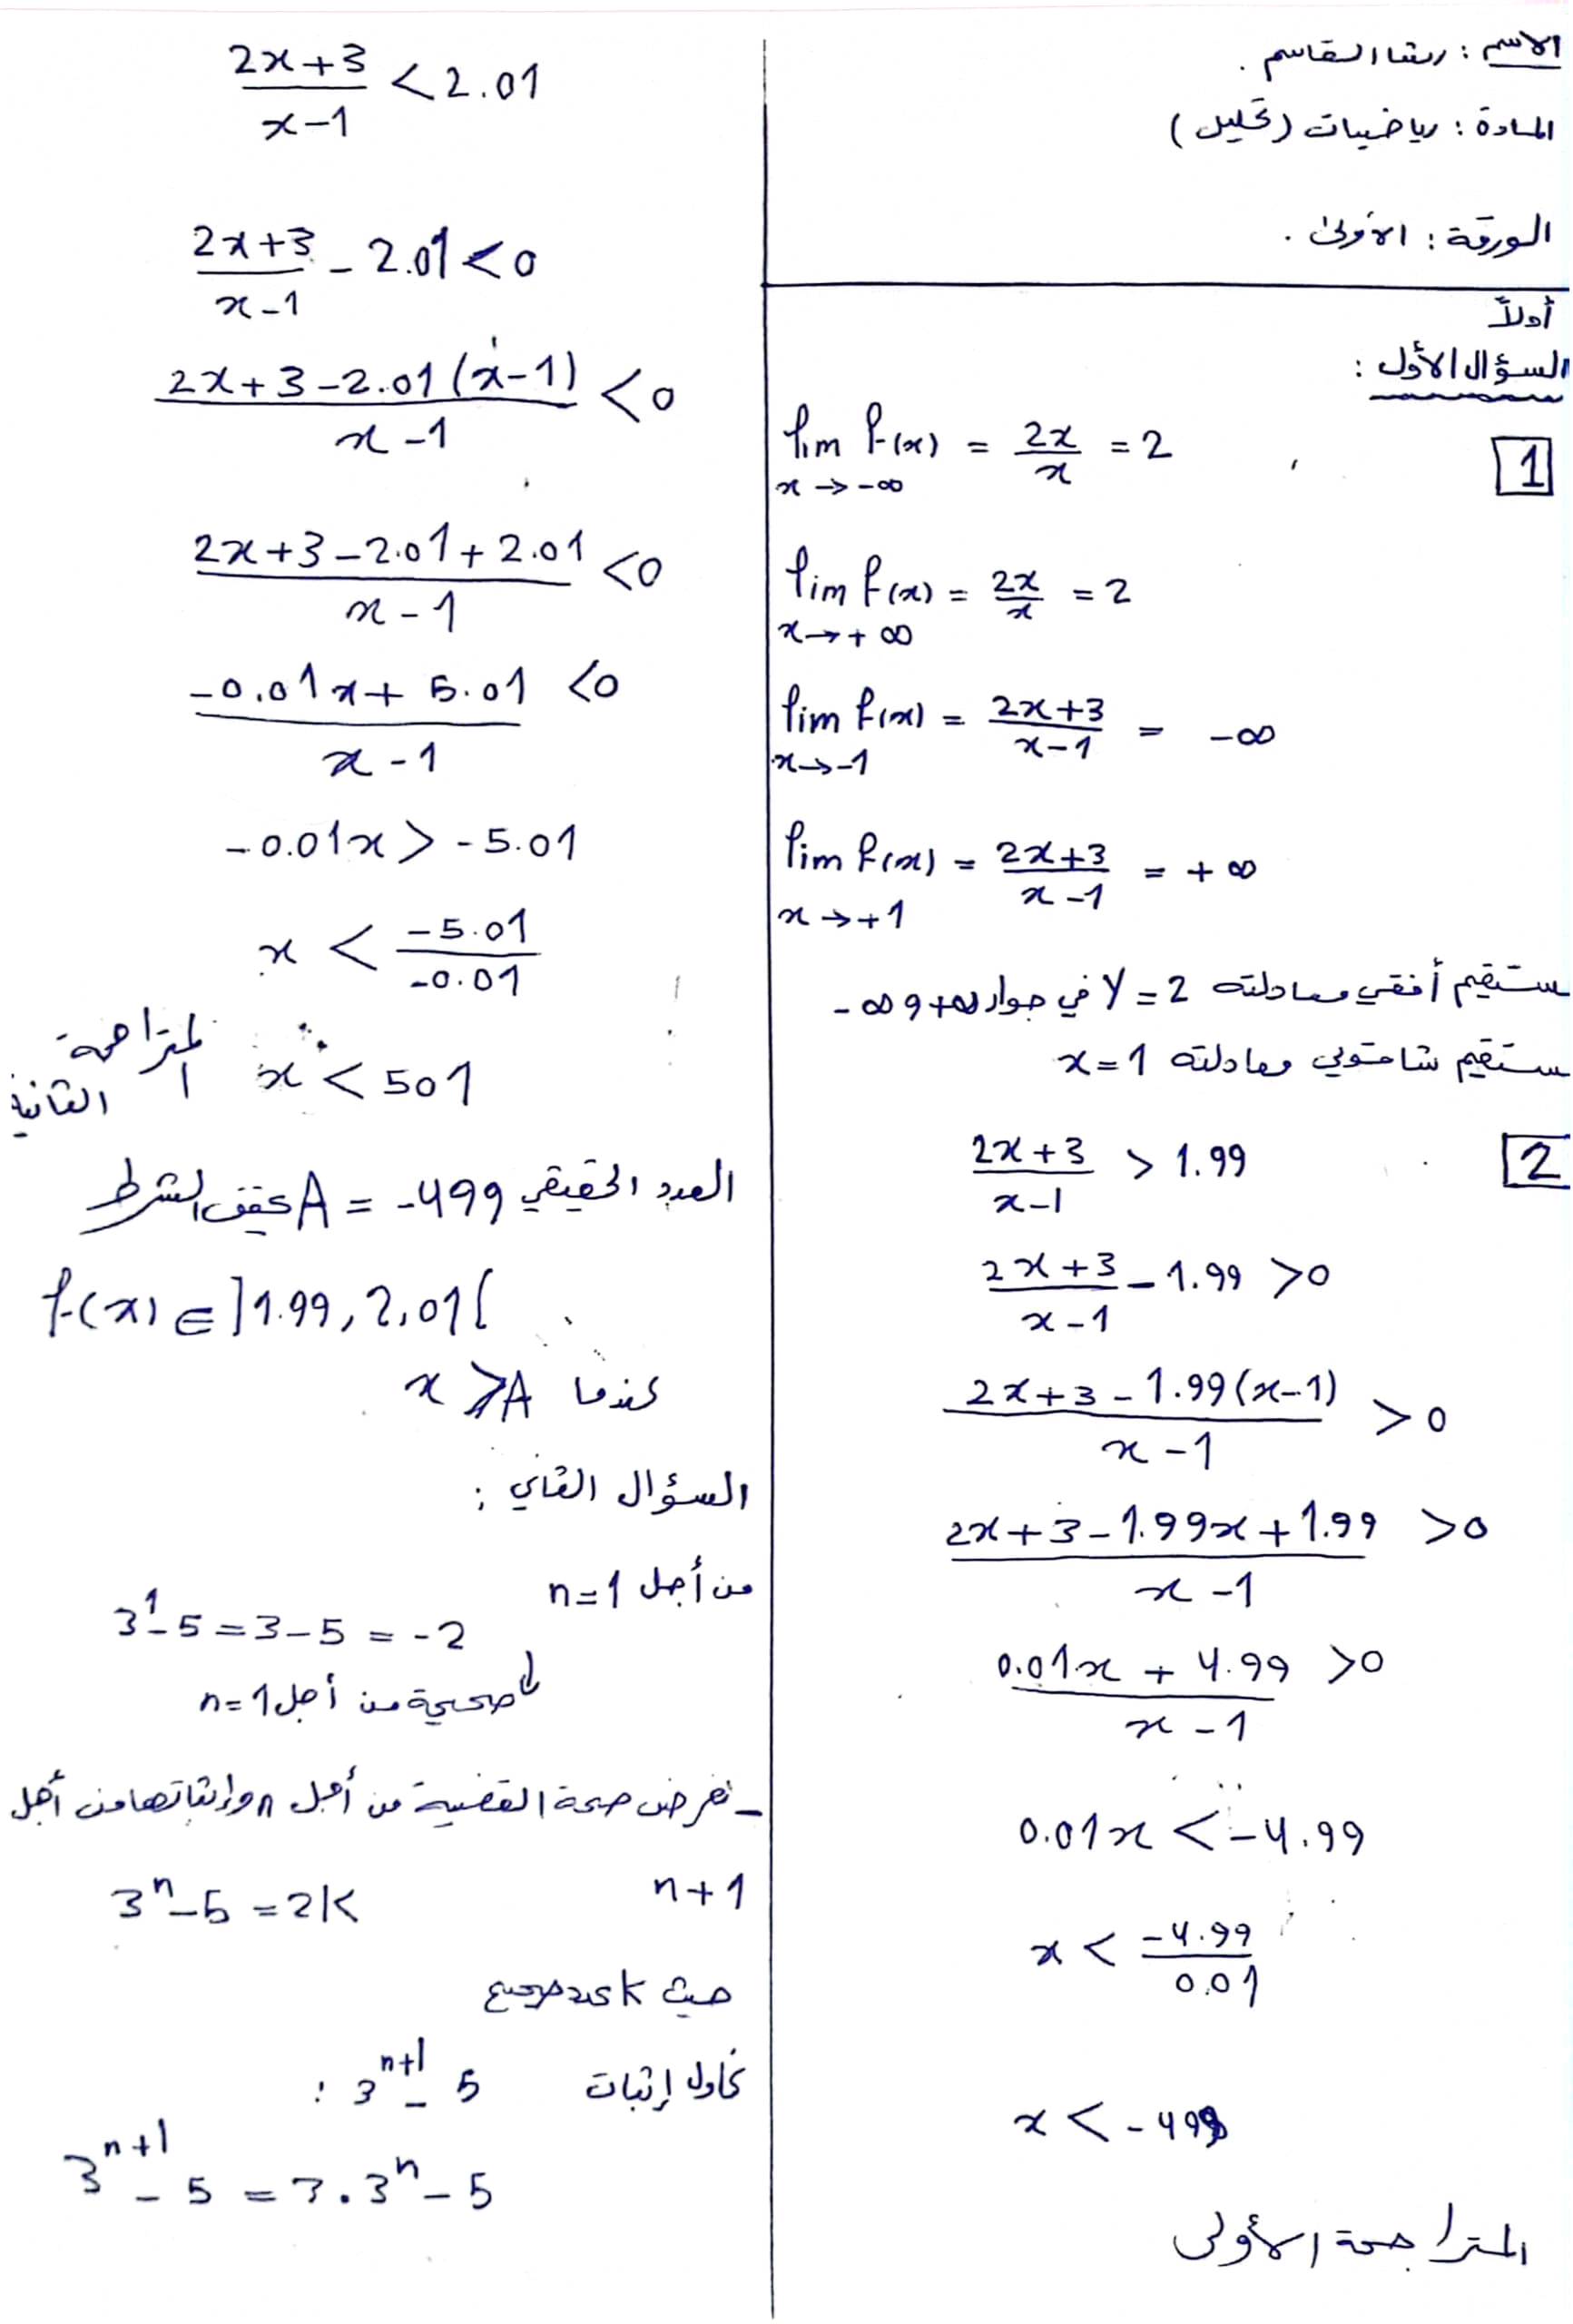 الاسم : رشا القاسم .
المادة : رياضيات (تحليل)
الورقة : الأولى .
أولاً
السؤال الأول :
1
lim f(x) = 2x/x = 2
x → -∞
lim f(x) = 2x/x = 2
x → +∞
lim f(x) = 2x+3/x-1 = -∞
x → -1
lim f(x) = 2x+3/x-1 = +∞
x → +1
مستقيم أفقي معادلته y = 2 في جوار +∞ و -∞
مستقيم شاقولي معادلته x=1
2
2x+3/x-1 > 1.99
2x+3/x-1 - 1.99 >0
2x+3-1.99(x-1)/x-1 >0
2x+3-1.99x+1.99/x-1 >0
0.01x + 4.99/x-1 >0
0.01x < -4.99
x < -4.99/0.01
x < -499
المتراجحة الأولى
2x+3/x-1 < 2.01
2x+3/x-1 - 2.01 < 0
2x+3-2.01(x-1)/x-1 <0
2x+3-2.01+2.01/x-1 <0
-0.01x+5.01/x-1 <0
-0.01x > -5.01
x < -5.01/-0.01
x < 501 المتراجحة الثانية
العدد الحقيقي A = -499 يحقق الشرط
f(x) ∈ ]1.99, 2,01[
عندما x ⩾ A
السؤال الثاني :
من أجل n=1
3^1-5 = 3-5 = -2
صحيحة من أجل n=1
- نفرض صحة القضية من أجل n وإثباتها من أجل
n+1
3^n-5 = 2k
حيث k عدد صحيح
نحاول إثبات 3^{n+1}-5 :
3^{n+1}-5 = 3.3^n-5